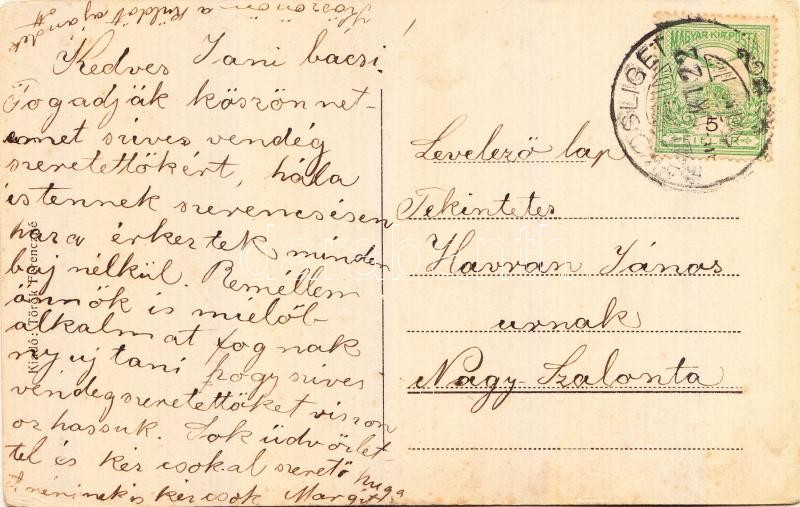 Köszönöm a küldött ajándék
Kedves Jani bácsi
Fogadják köszönnet-
emet szives vendég
szeretettökért, hála
istennek szerencsésen
haza érkeztek minden
baj nélkül. Reméllem
önnök is mielőb
alkalmat fognak
nyujtani hogy szives
vendégszeretettöket viszon
ozhassuk. Sok üdvözlet
tel és kéz csokal szerető huga
néninek is kéz csók Margit
Kiadó: Török Ferenczné
MAGYAR·KIR·POSTA
5
FILLÉR
OSLIGET
Levelező lap
Tekintetes
Havran János
urnak
Nagy-Szalonta
darabanth